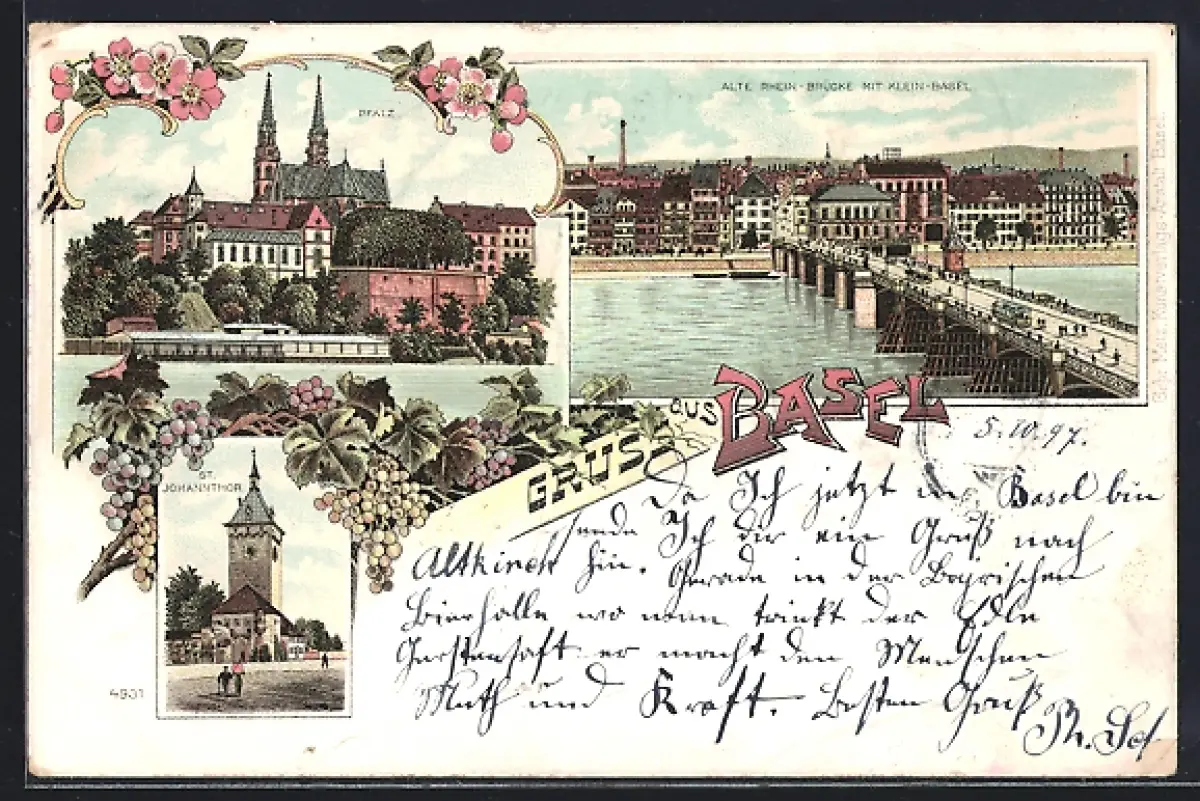 PFALZ
ALTE RHEIN-BRÜCKE MIT KLEIN-BASEL
Gebr. Metz, Kunstverlags-Anstalt Basel.
GRUSS AUS BASEL
ST. JOHANNTHOR
4931
5. IV. 97.
Da Ich jetzt in Basel bin
sende Ich dir ein Gruß nach
Altkirch hin. Gerade in der Bayrischen
Bierhalle wo man trinkt der Edle
Gerstensaft er macht den Menschen
Muth und Kraft. Besten Gruß